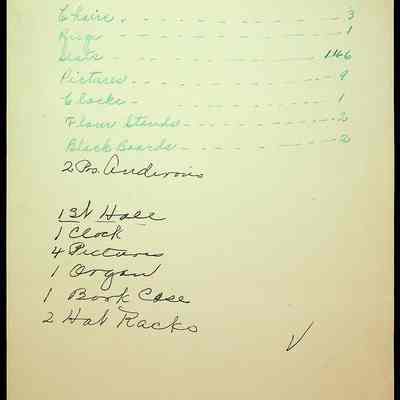 Chairs - - - - - - - - 3
Rugs - - - - - - - - 1
Seats - - - - - - - - 1166
Pictures - - - - - - - - 9
Clocks - - - - - - - - 1
Flour Stands - - - - - - - - 2
Black Boards - - - - - - - - 2
2 Prs. Andirons
1st Hall
1 Clock
4 Pictures
1 Organ
1 Book Case
2 Hat Racks